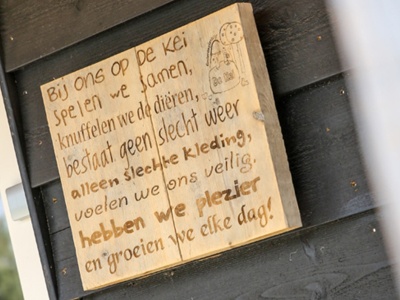 Bij ons op de kei
spelen we samen,
knuffelen we de dieren,
bestaat geen slecht weer
alleen slechte kleding,
voelen we ons veilig,
hebben we plezier
en groeien we elke dag!